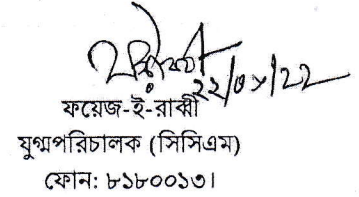 ২২/০৮/২২
ফয়েজ-ই-রাব্বী
যুগ্মপরিচালক (সিসিএম)
ফোন: ৮১৮০০১৩।